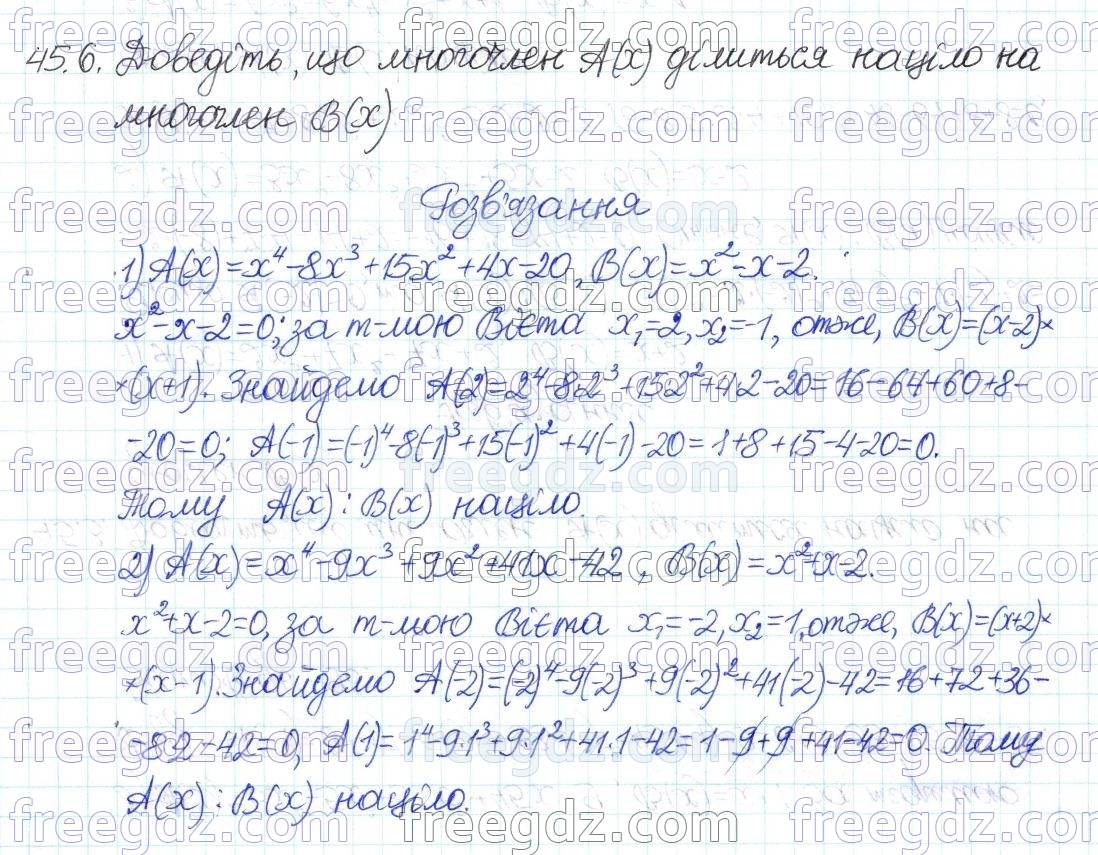 45.6. Доведіть, що многочлен A(x) ділиться націло на
многочлен B(x)
Розв'язання
1) A(x) = x⁴ - 8x³ + 15x² + 4x - 20, B(x) = x² - x - 2.
x² - x - 2 = 0; за т-мою Вієта x₁ = 2, x₂ = -1, отже, B(x) = (x-2)×
×(x+1). Знайдемо A(2) = 2⁴ - 8·2³ + 15·2² + 4·2 - 20 = 16 - 64 + 60 + 8 -
- 20 = 0; A(-1) = (-1)⁴ - 8(-1)³ + 15(-1)² + 4(-1) - 20 = 1 + 8 + 15 - 4 - 20 = 0.
Тому A(x) : B(x) націло.
2) A(x) = x⁴ - 9x³ + 9x² + 41x - 42, B(x) = x² + x - 2.
x² + x - 2 = 0, за т-мою Вієта x₁ = -2, x₂ = 1, отже, B(x) = (x+2)×
×(x-1). Знайдемо A(-2) = (-2)⁴ - 9(-2)³ + 9(-2)² + 41(-2) - 42 = 16 + 72 + 36 -
- 82 - 42 = 0, A(1) = 1⁴ - 9·1³ + 9·1² + 41·1 - 42 = 1 - 9 + 9 + 41 - 42 = 0. Тому
A(x) : B(x) націло.
freegdz.com